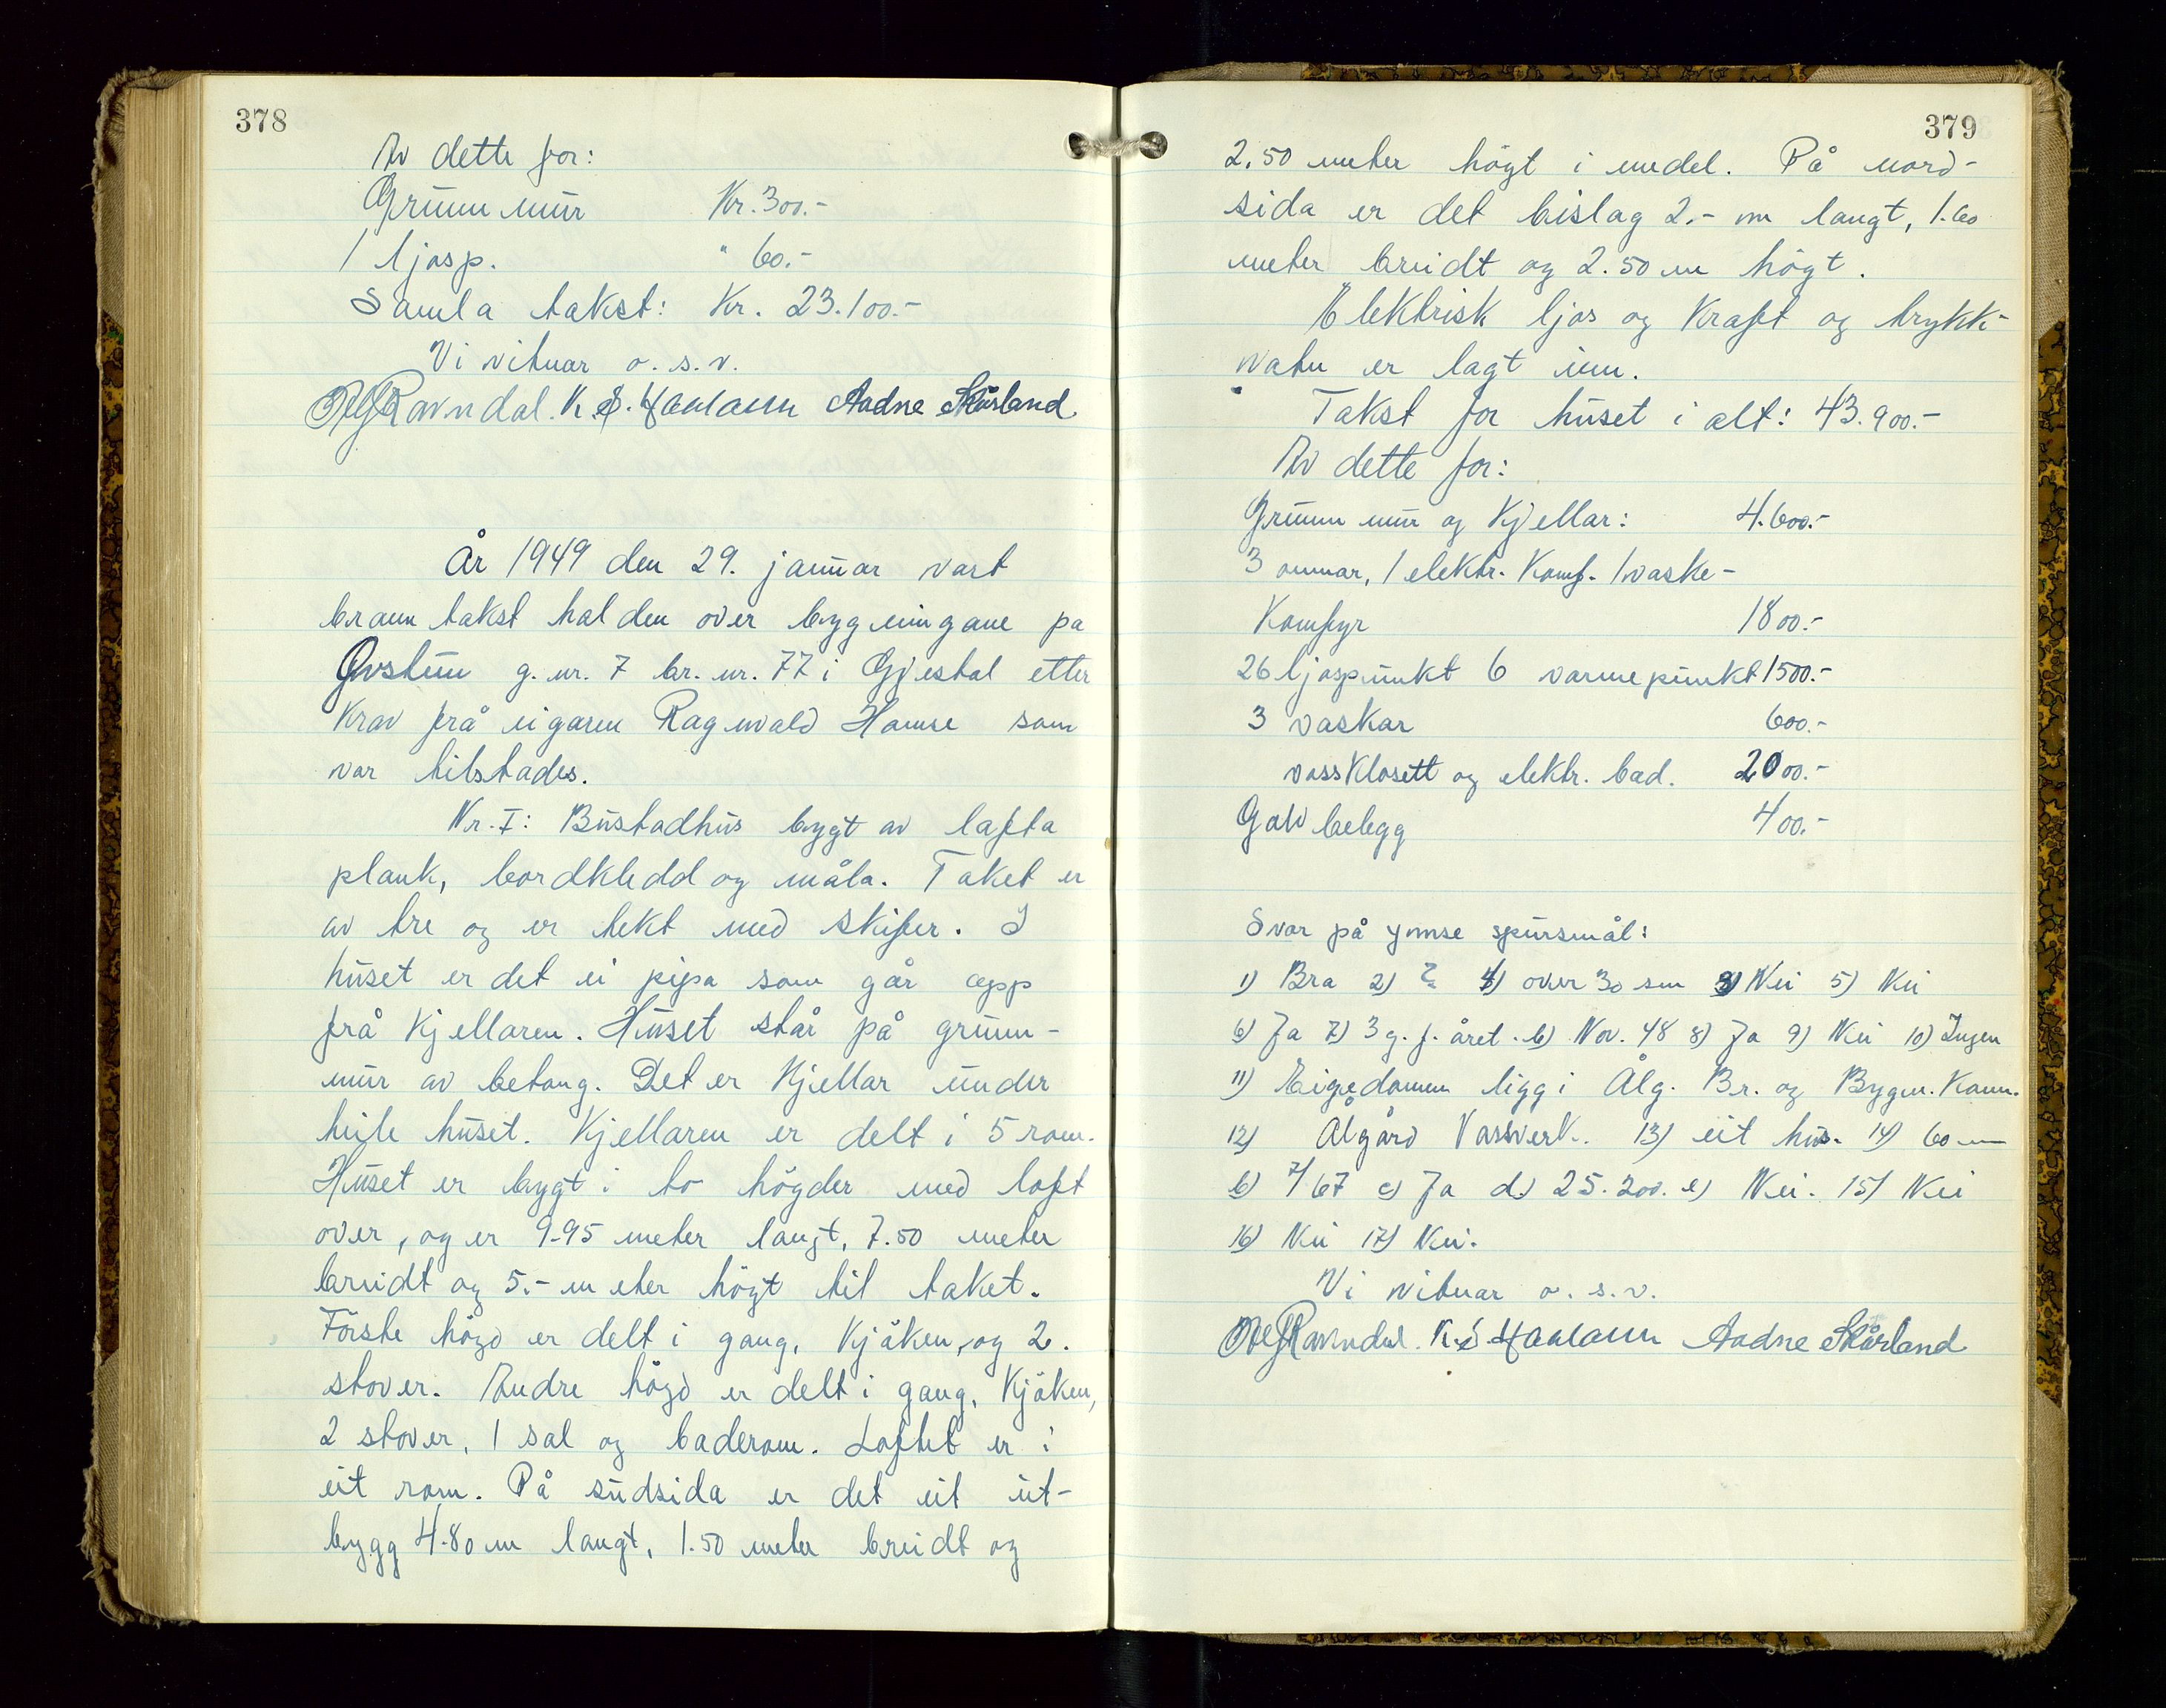 378
Av dette for:
Grunnmur Kr. 300.-
1 ljosp. " 60.-
Samla takst: Kr. 23.100.-
Vi vitnar o. s. v.
Ravndal. K. S. Aadne Skårland
År 1949 den 29. januar vart
branntakst halden over bygningane på
Opstun g. nr. 7 br. nr. 77 i Gjestal etter
krav frå eigaren Ragnvald Hamre som
var tilstades.
Nr. I: Bustadhus bygt av lafta
plank, bordkledd og måla. Taket er
av tre og er tekt med skifer. I
huset er det ei pipa som går opp
frå kjellaren. Huset står på grunn-
mur av betong. Det er kjellar under
heile huset. Kjellaren er delt i 5 rom.
Huset er bygt i to högder med loft
over, og er 9.95 meter langt, 7.50 meter
breidt og 5.- meter högt til taket.
Förste högd er delt i gang, kjöken, og 2.
stover. Andre högd er delt i gang, kjöken,
2 stover, 1 sal og baderom. Loftet er i
eit rom. På sudsida er det eit ut-
bygg 4.80 m langt, 1.50 meter breidt og
379
2.50 meter högt i medel. På nord-
sida er det bislag 2.- m langt, 1.60
meter breidt og 2.50 m högt.
Elektrisk ljos og kraft og trykk-
vatn er lagt inn.
Takst for huset i alt: 43.900.-
Av dette for:
Grunnmur og kjellar: 4.600.-
3 omnar, 1 elektr. komf. 1 vaske-
komfyr 1800.-
26 ljospunkt 6 varmepunkt 1500.-
3 vaskar 600.-
vassklosett og elektr. bad. 2000.-
Golvbelegg 400.-
Svar på ymse spursmål:
1) Bra 2) 4) over 30 sm 3) Nei 5) Nei
6) Ja 7) 3 g. f. året. b) Nov. 48 8) Ja 9) Nei 10) Ingen
11) Eigedomen ligg i Ålg. Br. og Bygn. Komm.
12) Ålgård Vassverk. 13) eit hus. 14) 60 m
b) 7/67 c) Ja d.) 25.200. e) Nei. 15) Nei
16) Nei 17) Nei.
Vi vitnar o. s. v.
Ravndal. K. S. Aadne Skårland